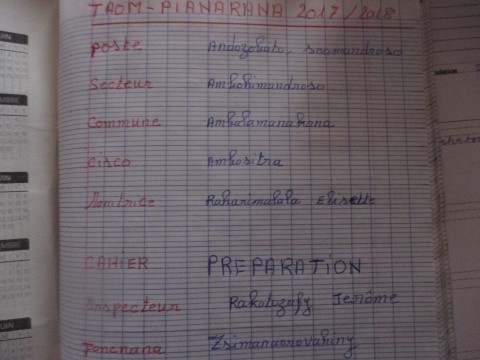 TAOM-PIANARANA 2017/2018
Poste Andozobato, soamandroso
Secteur Ambohimandroso
Commune Ambalamanakana
Cisco Ambositra
Monitrice Raharimalala Elisette
CAHIER PREPARATION
Inspecteur Rakotozafy Jerôme